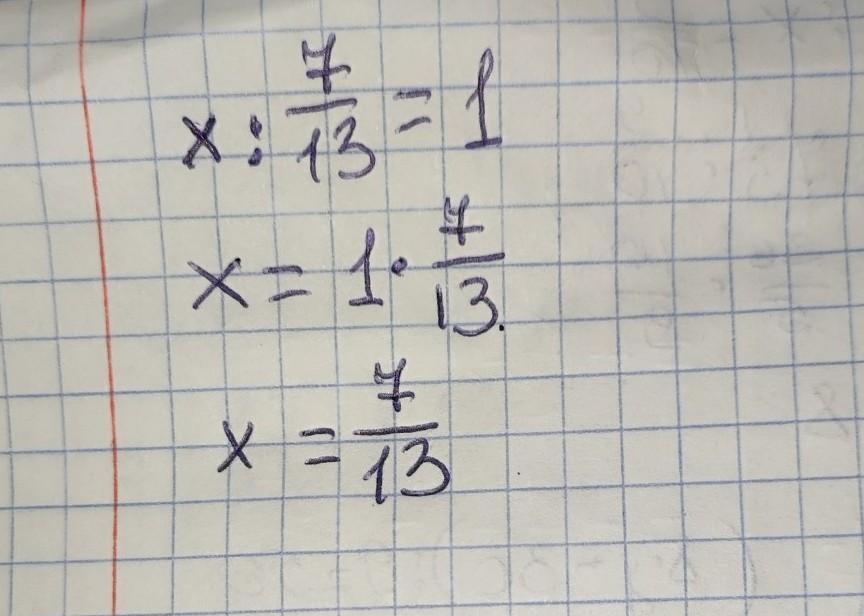 x : 7/13 = 1
x = 1 · 7/13
x = 7/13